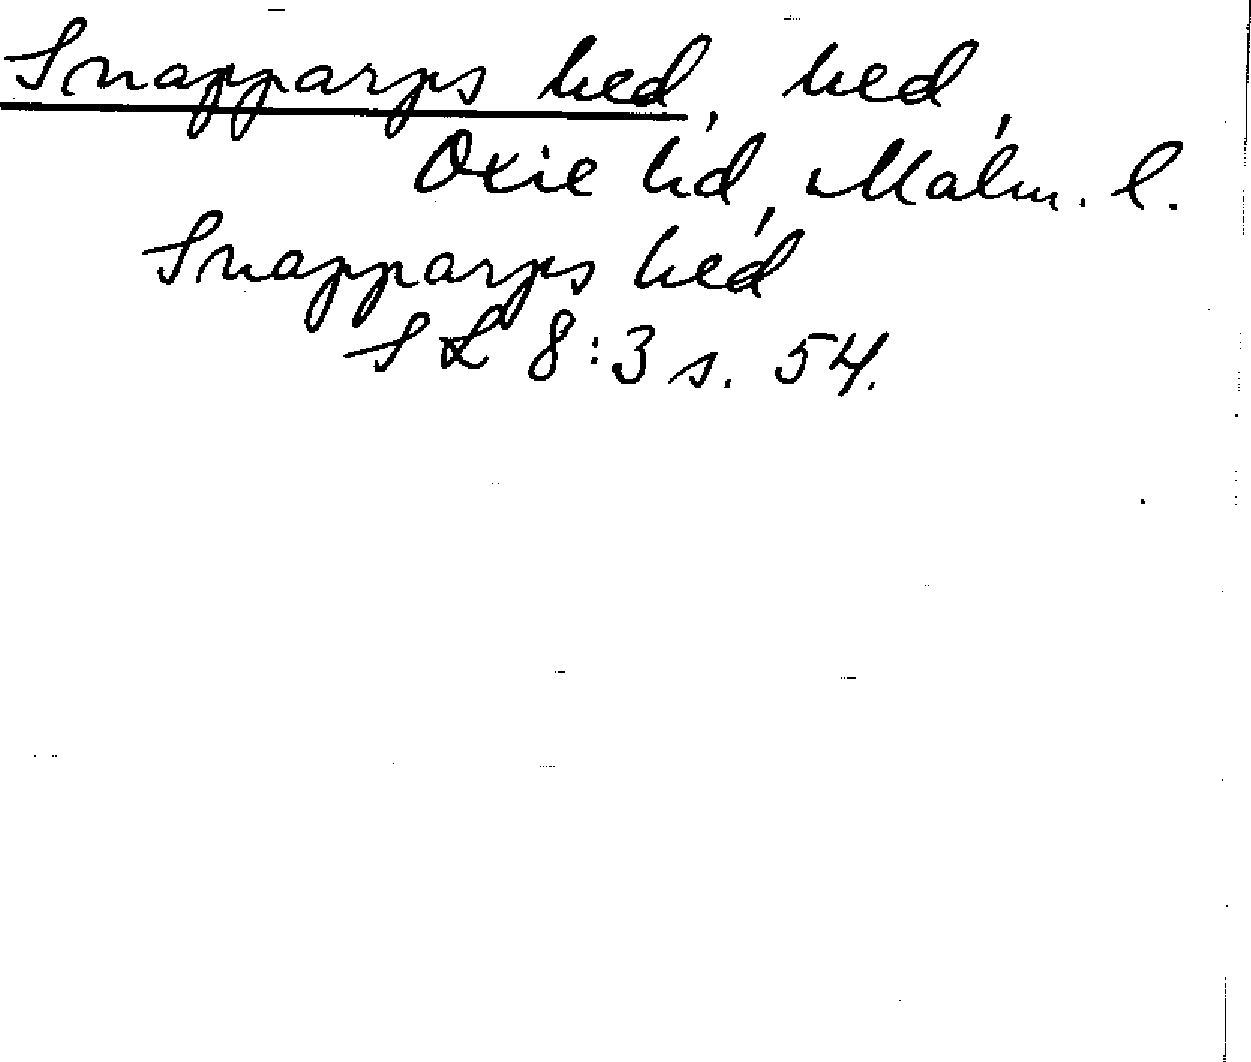 Snapparps hed, hed,
Oxie hd, Malm. l.
Snapparps hed
SL 8:3 s. 54.